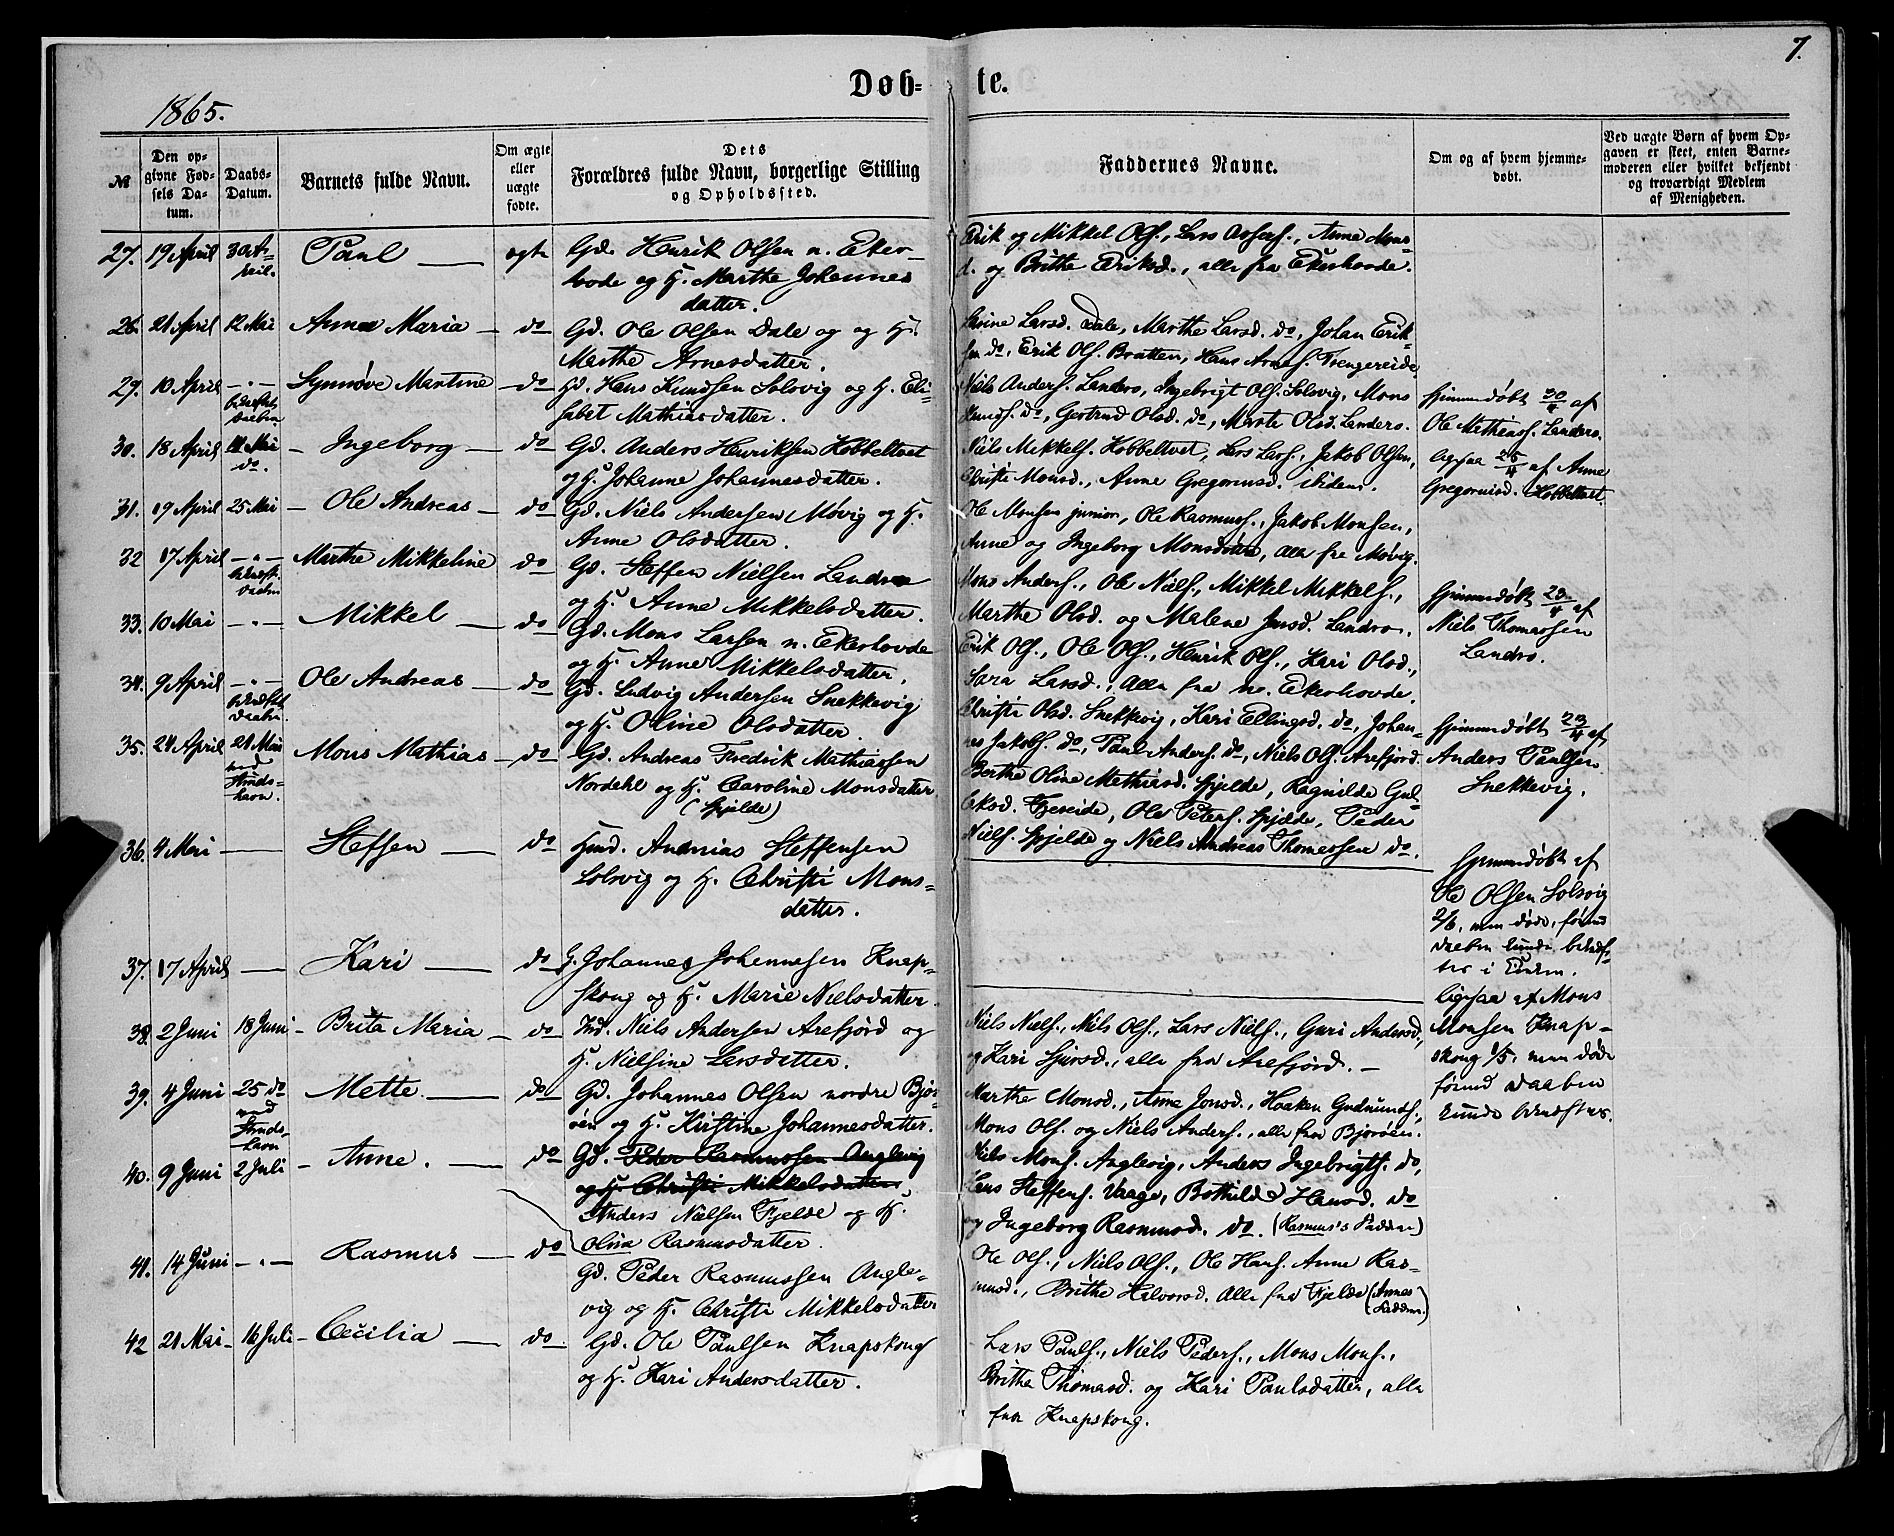 7.
Døb-
te.
1865.
№
Den opgivne Fødsels Datum.
Daabs-Datum.
Barnets fulde Navn.
Om ægte eller uægte fødte.
Dets Forældres fulde Navn, borgerlige Stilling og Opholdssted.
Faddernes Navne.
Om og af hvem hjemmedøbt.
Ved uægte Børn af hvem Opgaven er skeet, enten Barnemoderen eller hvilket bekjendt og troværdigt Medlem af Menigheden.
27. 19 April 30 April. Paul ægte
Gd. Henrik Olsen n. Eker-
hovde og H. Marthe Johannes
datter.
Erik og Mikkel Ols., Lars Anders., Anne Mons-
d. og Brithe Eriksd., alle fra Ekerhovde.
28. 21 April 12 Mai Anna Maria do
Gd. Ole Olsen Dale og og H.
Marthe Arnesdatter.
Larsd. Dale, Marthe Larsd. do, Johan Erik-
sen do, Erik Ols. Bratten, Hans Arnes. Trengereide
29. 10 April - " - Synnøve Martine do
Gd. Hans Knudsen Solsvig og H. Eli-
sabet Mathiasdatter.
Niels Anders. Landro, Ingebrigt Ols. Solsvig, Mons
Knuds. do, Gertrud Olsd. do, Marte Olsd. Landro.
Hjemmedøbt 30/4 af
Ole Mathias. Landro.
30. 18 April Mai do. Ingeborg do
Gd. Anders Henriksen Kobbeltvet
og H. Johanne Johannesdatter.
Niels Mikkels. Kobbeltvet, Lars Lars., Jakob Olsen,
Christi Monsd., Anne Gregoriusd. ibidem.
ligesaa 25/4 af Anne
Gregoriusd. Kobbeltvet.
31. 19 April 25 Mai Ole Andreas do
Gd. Niels Andersen Møvig og H.
Anne Olsdatter.
Ole Monsen junior, Ole Rasmus., Jakob Monsen,
Anne og Ingeborg Monsdøtre, alle fra Møvig.
32 17 April - " - Marthe Mikkeline do
Gd. Steffen Nielsen Landro
og H. Anne Mikkelsdatter.
Mons Anders., Ole Niels., Mikkel Mikkels.,
Marthe Olsd. og Malene Jensd. Landro.
Hjemmedøbt 23/4 af
Niels Thomassen
Landro.
33. 10 Mai - " - Mikkel do
Gd. Mons Larsen n. Ekerhovde
og H. Anne Mikkelsdatter.
Erik Ols., Ole Ols., Henrik Ols., Kari Olsd.,
Sara Larsd., alle fra no. Ekerhovde.
34. 9 April - " - Ole Andreas do
Gd. Ludvig Andersen Snekkevig
og H. Oline Olsdatter.
Christi Olsd. Snekkevig, Kari Ellingsd. do, Johan-
nes Jakobs. do, Paul Anders. do, Niels Ols. Arefjord.
Hjemmedøbt 23/4 af
Anders Paulsen
Snekkevig.
35. 21 April 21 Mai ved Strudshavn. Mons Mathias do
Gd. Andreas Fredrik Mathiassen
Nordahl og H. Caroline Monsdatter
(Spjelde)
Berthe Oline Mathiasd. Spjelde, Ragnilde Gul-
leksd. Fjereide, Ole Peters. Spjelde, Peder
Niels. Spjelde og Niels Andreas Thomassen do.
36. 4 Mai Steffen do
Hmd. Andreas Steffensen
Solsvig og H. Christi Mons-
datter.
Hjemmedøbt af
Ole Olsen Solsvig
2/6, men døde, førend
Daaben kunde bekræf-
tes i Kirken.
37. 17 April Kari do
G. Johannes Johannesen Knap-
skong og H. Marie Nielsdatter.
ligesaa af Mons
Monsen Knap-
skong 1/5, men døde
førend Daaben
kunde bekræftes.
38. 2 Juni 18 Juni Brita Maria do
Ind. Niels Andersen Arefjord og
H. Nielsine Larsdatter.
Niels Niels., Niels Ols., Lars Niels., Guri Andersd.,
og Kari Sjursd., alle fra Arefjord.
39. 4 Juni 25 do ved Strudshavn Mette. do
Gd. Johannes Olsen nordre Bjor-
øen og H. Kirstine Johannesdatter.
Marthe Monsd., Anne Jonsd., Haaken Gudmunds.,
Mons Ols. og Niels Anders., alle fra Bjorøen.
40. 9 Juni 2 Juli Anne. do
Gd. Peder Rasmussen Anglevig
og H. Christi Mikkelsdatter
Anders Nielsen Fjelde og H.
Olina Rasmusdatter.
Niels Mons. Anglevig, Anders Ingebrigts. do,
Lars Steffens. Vaage, Bothilde Hansd. do
og Ingeborg Rasmusd. do. (Rasmus's Faddere)
41. 14 Juni - " - Rasmus do
Gd. Peder Rasmussen Angle-
vig og H. Christi Mikkelsdatter
Ole Ols., Niels Ols., Ole Hans. Anne Ras-
musd., Brithe Halvorsd. alle fra Fjelde (Annes Faddere.)
42 21 Mai 16 Juli Cecilia do
Gd. Ole Paulsen Knapskong
og H. Kari Andersdatter.
Lars Pauls., Niels Peders., Mons Mons.,
Brithe Thomasd. og Kari Paulsdatter, alle
fra Knapskong.